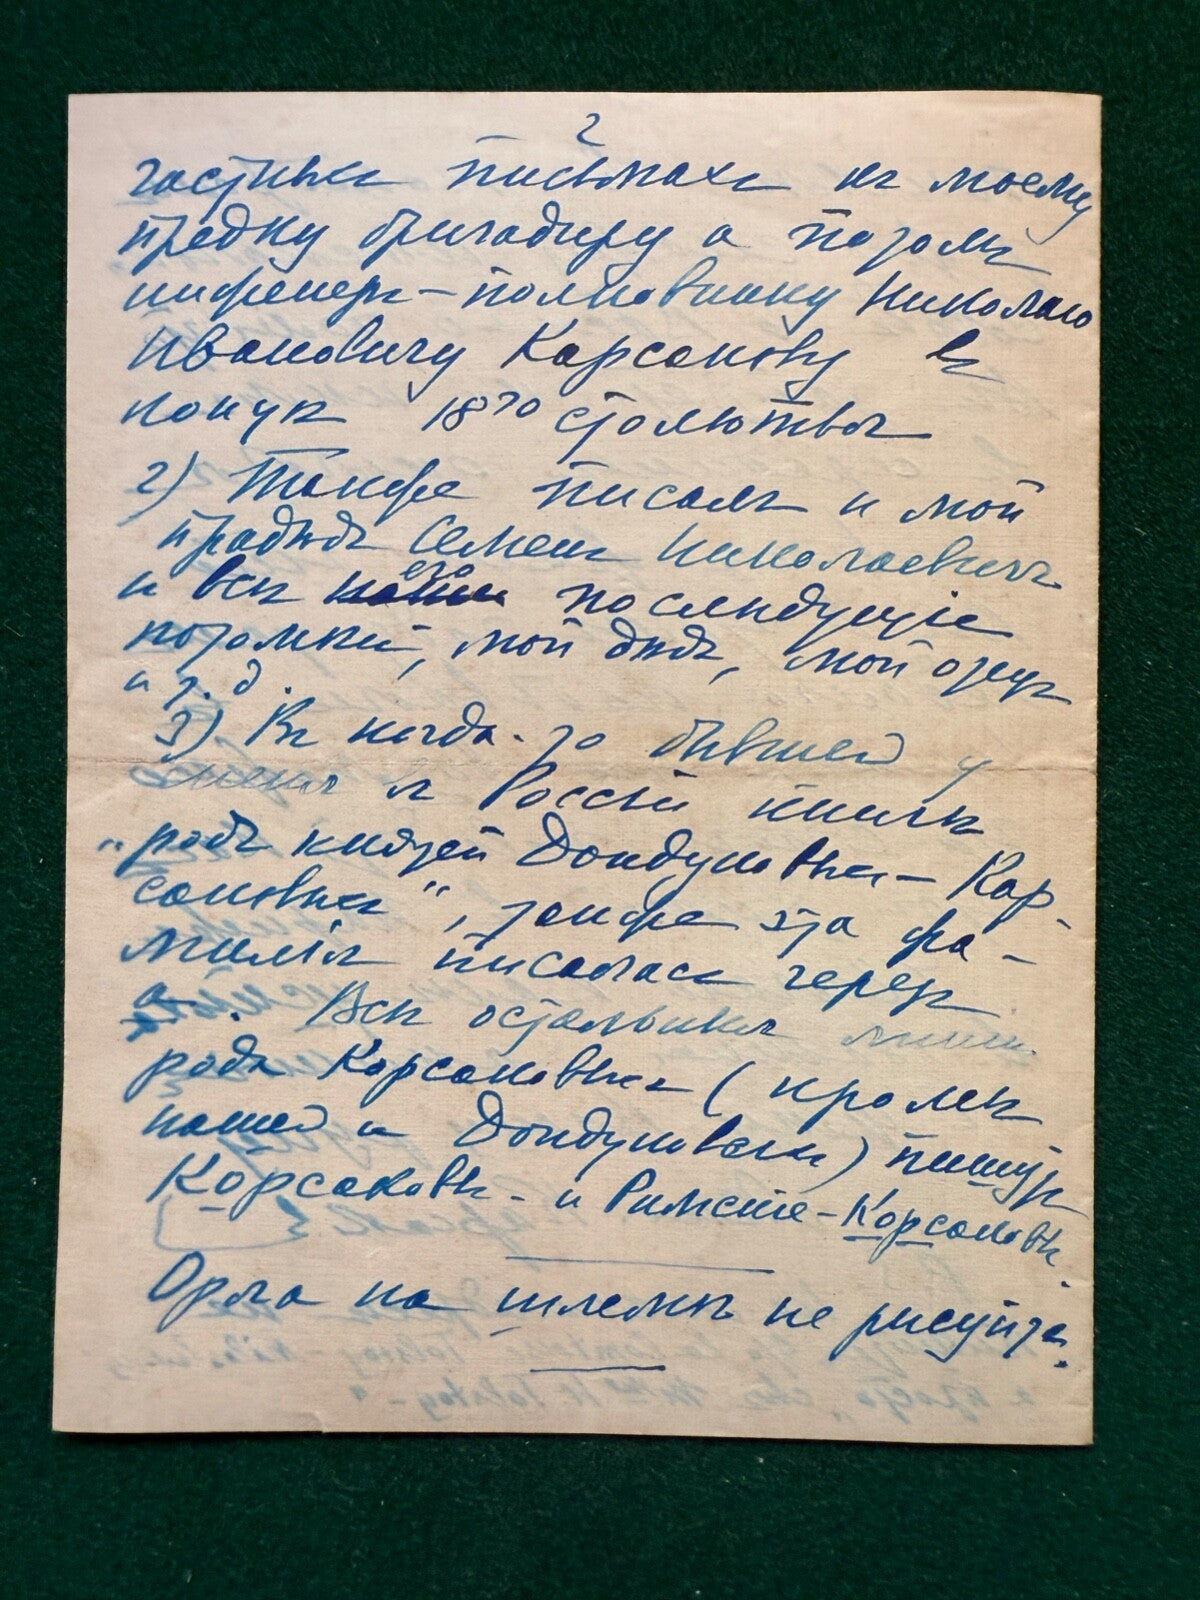 2
частныхъ письмахъ къ моему
предку бригадиру а потомъ
инженеръ-полковнику Николаю
Ивановичу Карсакову въ
концѣ 18го столѣтья
2) Также писалъ и мой
прадѣдъ Семенъ Николаевичъ
и всѣ его послѣдующіе
потомки, мой дѣдъ, мой отецъ
и т. д.
3) Въ когда-то бывшей у
меня въ Россіи книгѣ
„родъ князей Дондуковыхъ-Кар-
саковыхъ", также эта фа-
милія писалась черезъ
а. Всѣ остальныя линіи
рода Корсаковыхъ (кромѣ
нашей и Дондуковыхъ) пишутъ
Корсаковъ - и Римскіе-Корсаковы.
Орла на шлемѣ не рисуйте.